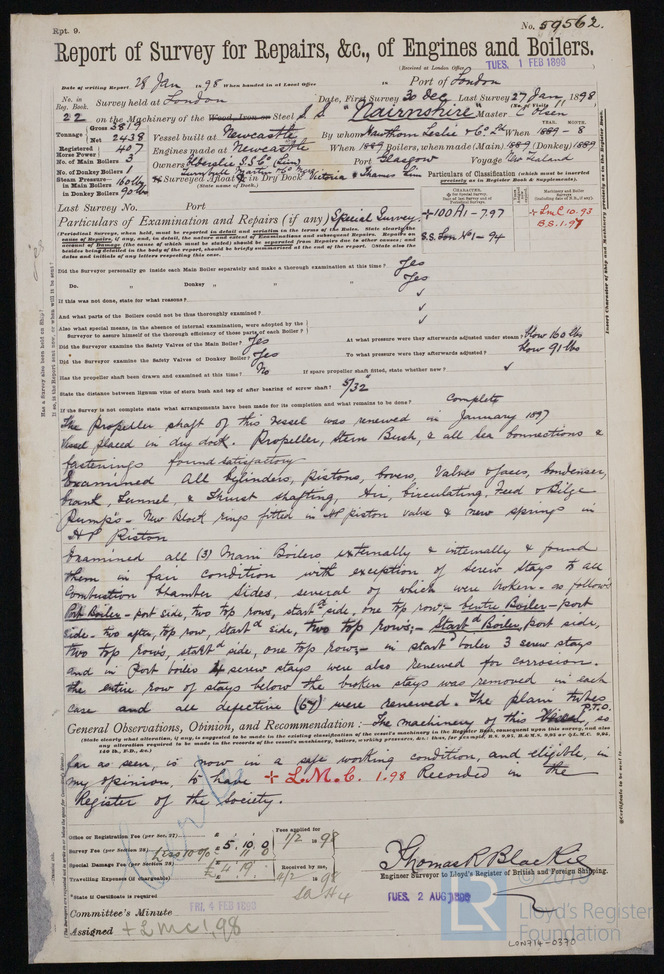 Rpt. 9.
No. 59562.
Report of Survey for Repairs, &c., of Engines and Boilers.
(Received at London Office TUES. 1 FEB 1898
Date of writing Report 28 Jan 1898 When handed in at Local Office 18 Port of London
No. in Reg. Book. Survey held at London Date, First Survey 30 Dec Last Survey 27 Jan 1898
22 on the Machinery of the Wood, Iron or Steel S S "Nairnshire" Master C Olsen
Tonnage Gross 3819 Net 2438 Vessel built at Newcastle By whom Hawthorn Leslie & Co Ld When 1889 - 8
Registered Horse Power 407 Engines made at Newcastle When 1889 Boilers, when made (Main) 1889 (Donkey) 1889
No. of Main Boilers 3 Owners Elderslie S.S. Co (Lim) Port Glasgow Voyage New Zealand
No. of Donkey Boilers 1
Steam Pressure in Main Boilers 160 lbs in Donkey Boilers 90 lbs
If Surveyed Afloat or in Dry Dock Victoria & Thames
(State name of Dock.)
Particulars of Classification (which must be inserted precisely as in Register Book & Supplements).
Last Survey No. Port
Particulars of Examination and Repairs (if any) Special Survey
+100A1-7.97
S.S. Lon No 1-94
+LMC 10.93
B.S. 1.97
Did the Surveyor personally go inside each Main Boiler separately and make a thorough examination at this time? Yes
Do. " Donkey " " " Yes
If this was not done, state for what reasons?
And what parts of the Boilers could not be thus thoroughly examined?
Also what special means, in the absence of internal examination, were adopted by the Surveyor to assure himself of the thorough efficiency of those parts of each Boiler?
Did the Surveyor examine the Safety Valves of the Main Boiler? Yes At what pressure were they afterwards adjusted under steam? Blow 160 lbs
Did the Surveyor examine the Safety Valves of Donkey Boiler? Yes To what pressure were they afterwards adjusted? Blow 91 lbs
Has the propeller shaft been drawn and examined at this time? No If spare propeller shaft fitted, state whether new?
State the distance between lignum vitæ of stern bush and top of after bearing of screw shaft? 5/32"
If the Survey is not complete state what arrangements have been made for its completion and what remains to be done? Complete
The Propeller shaft of this vessel was renewed in January 1897
Vessel placed in dry dock. Propeller, Stern Bush, & all sea connections &
fastenings found satisfactory
Examined all cylinders, pistons, covers, valves & faces, condenser,
crank, tunnel, & thrust shafting, Air, circulating, Feed & Bilge
Pumps - New Block rings fitted in HP piston valve & new springs in
HP Piston
Examined all (3) Main Boilers externally & internally & found
them in fair condition with exception of screw stays to all
combustion chamber sides, several of which were broken - as follows
Port Boiler - port side, two top rows, starbd side, one top row; - Centre Boiler - port
side - two after, top row, starbd side, two top rows; - Starbd Boiler, port side,
two top rows, starbd side, one top row; - in starbd boiler 3 screw stays
and in Port boiler 4 screw stays were also renewed for corrosion.
the entire row of stays below the broken stays was removed in each
case and all defective (64) were renewed. The plain tubes
P.T.O.
General Observations, Opinion, and Recommendation :- The machinery of this Vessel, so
far as seen, is now in a safe working condition, and eligible, in
my opinion, to have + L.M.C. 1.98 Recorded in the
Register of the Society.
Office or Registration Fee (per Sec. 27)
Survey Fee (per Section 28) £ 5. 10. 0
less 10% 11 0
Special Damage Fee (per Section 28) £ 4 19
Travelling Expenses (if chargeable)
Fees applied for 1/2 1898
Received by me, 18 98
Thomas R Blackie
Engineer Surveyor to Lloyd's Register of British and Foreign Shipping.
State if Certificate is required
TUES. 2 AUG 1898
Committee's Minute FRI. 4 FEB 1898
Assigned + LMC 1.98
Lloyd's Register Foundation
LON714-0370